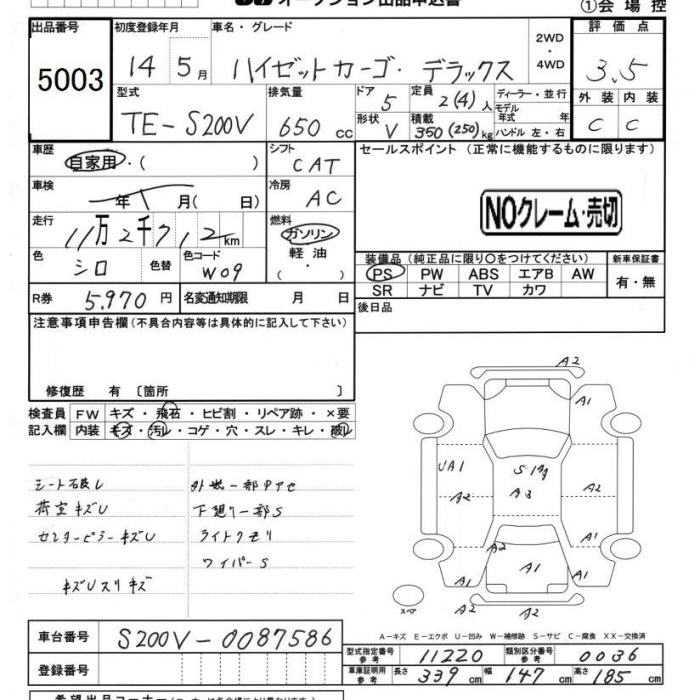 オークション出品申込書
①会場控
出品番号 初度登録年月 車名・グレード 2WD ・ 4WD 評価点
5003 14 5月 ハイゼットカーゴ・デラックス 3.5
型式 排気量 ドア 5 定員 2(4)人 ディーラー・並行 外装 内装
TE-S200V 650cc 形状 V 積載 350(250)kg モデル年式 年式 ハンドル 左・右 C C
車歴 自家用・( ) シフト CAT セールスポイント(正常に機能するものに限ります)
車検 年 月( 日) 冷房 AC
走行 11万2千712km 燃料 ガソリン・軽油・( )
NOクレーム・売切
色 シロ 色替 色コード W09
装備品(純正品に限り○をつけてください) 新車保証書
PS PW ABS エアB AW 有・無
SR ナビ TV カワ
R券 5.970円 名変通知期限 月 日 後日品
注意事項申告欄(不具合内容等は具体的に記入して下さい)
修復歴 有〔箇所 〕
検査員 FW キズ・飛石・ヒビ割・リペア跡・×要
記入欄 内装 キズ・汚レ・コゲ・穴・スレ・キレ・破レ
A2
A1
シート破レ
荷室キズU 下廻り一部S
センターピラーキズU ライトクモリ
ワイパーS
キズUスリキズ
UA1 A3 A2
A2
A2 A1
A1 A1 A1
A2
スペア
A-キズ E-エクボ U-凹み W-補修跡 S-サビ C-腐食 XX-交換済
車台番号 S200V-0087586 型式指定番号 参考 11220 類別区分番号 参考 0036
登録番号 車庫証明用 参考 長さ 339cm 幅 147cm 高さ 185cm